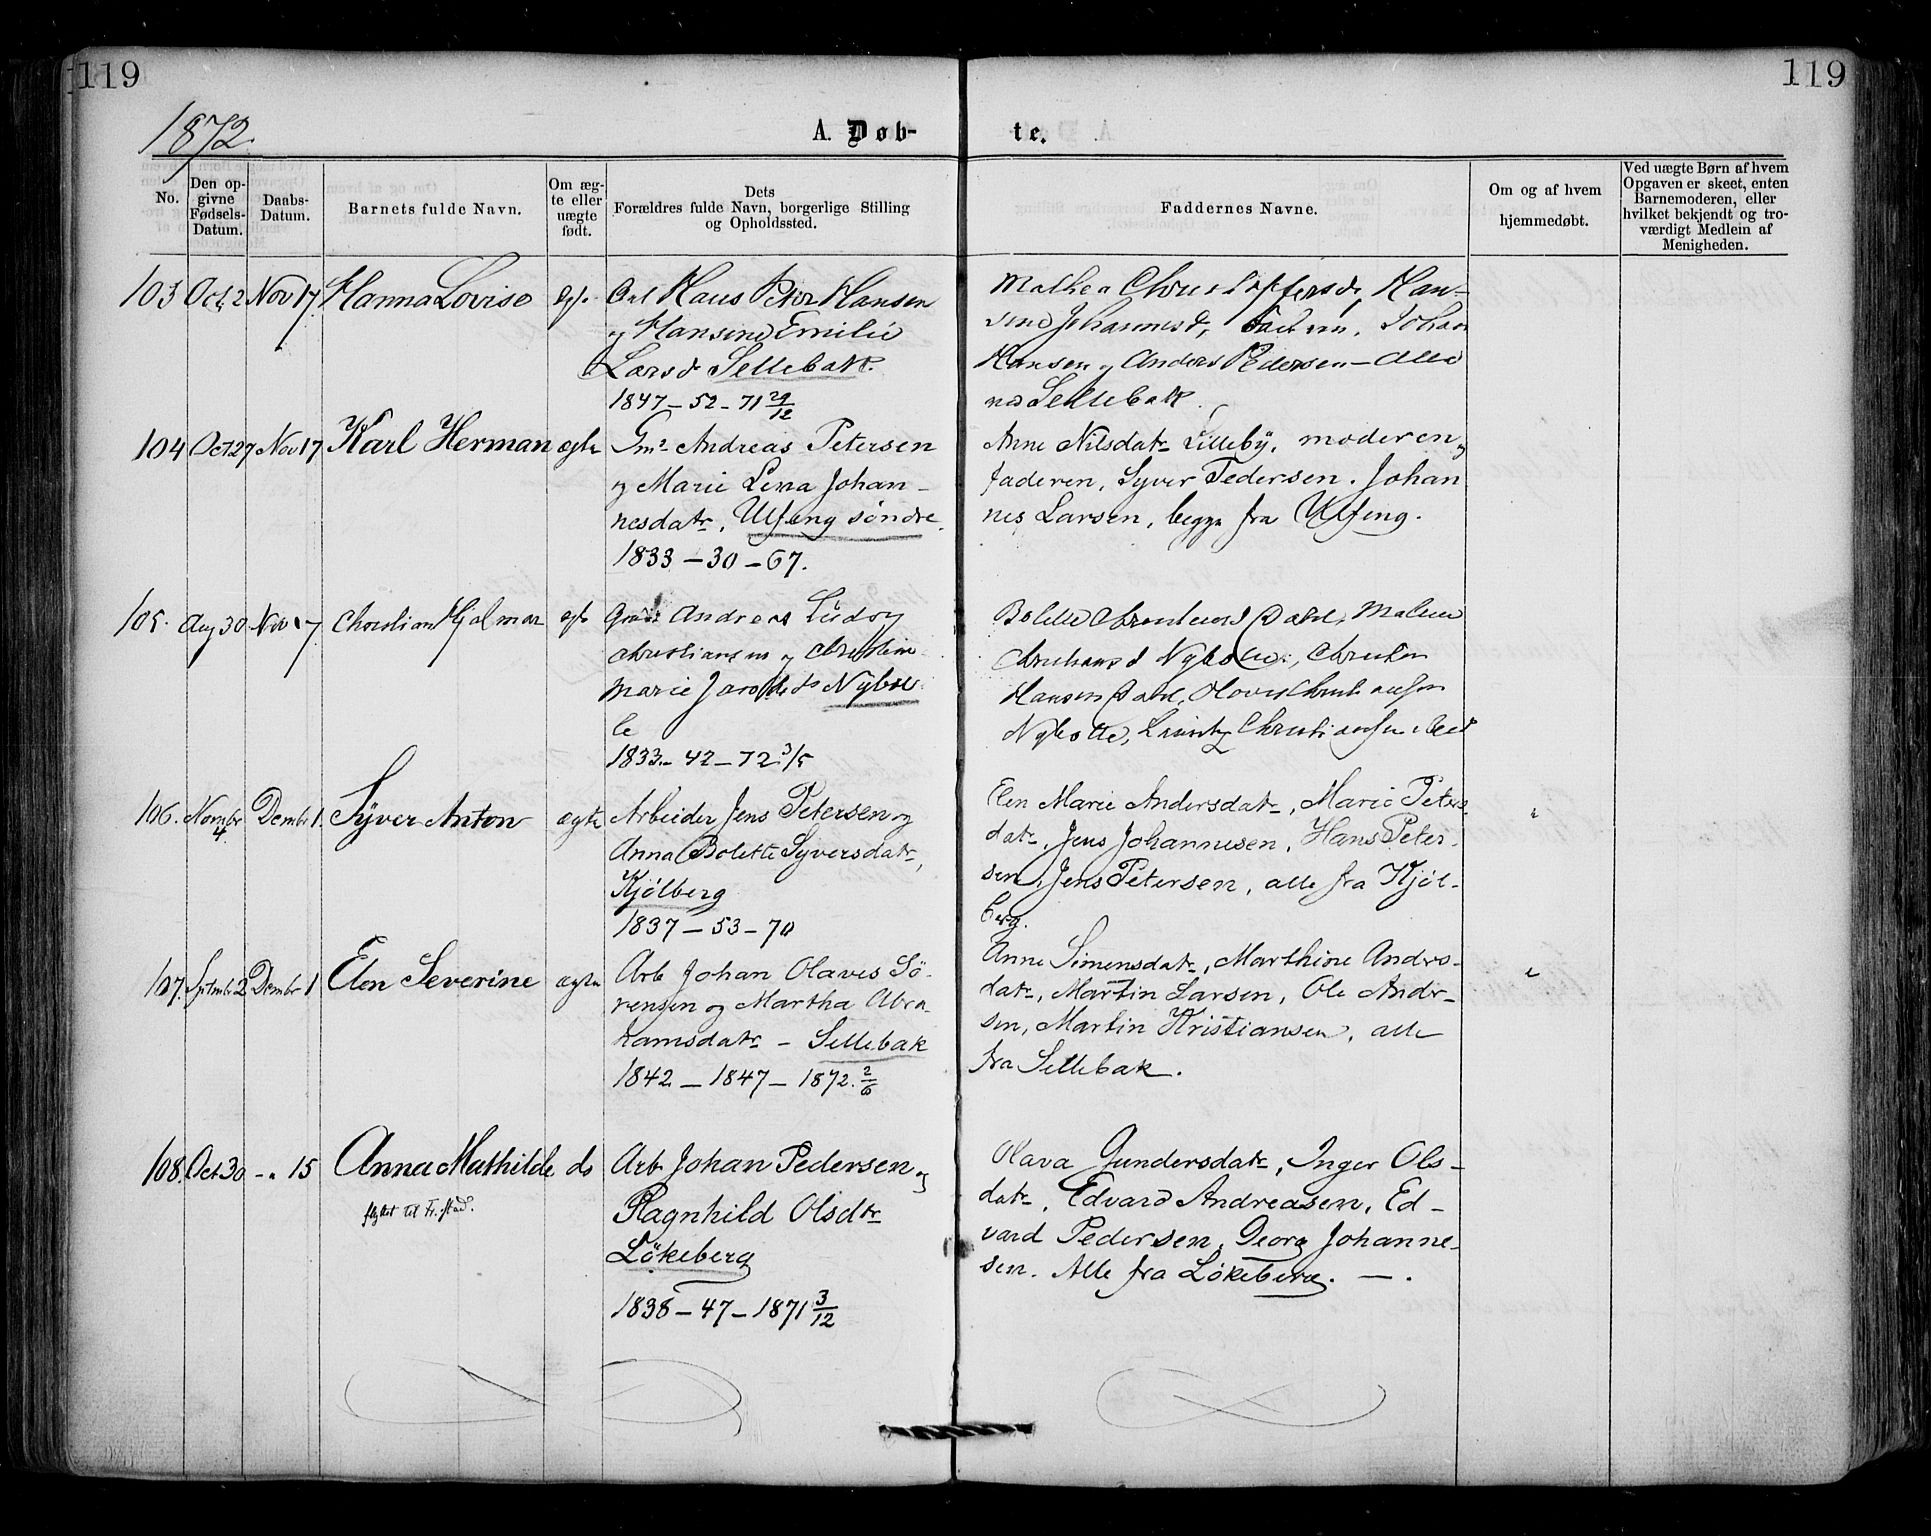 119
119
1872.
A. Døb-
te.
No.
Den op-
givne
Fødsels-
Datum.
Daabs-
Datum.
Barnets fulde Navn.
Om æg-
te eller
uægte
født.
Dets
Forældres fulde Navn, borgerlige Stilling
og Opholdssted.
Faddernes Navne.
Om og af hvem
hjemmedøbt.
Ved uægte Børn af hvem
Opgaven er skeet, enten
Barnemoderen, eller
hvilket bekjendt og tro-
værdigt Medlem af
Menigheden.
103 Oct 2 Nov 17 Hanna Lovise
Hans Peter Hansen
og Hansine Emilie
Larsd Sellebakk.
1847 – 52 – 71 29/12
Mathea Han-
sine Johannesd, Johan
Hansen og Anders Pedersen – Alle
Sellebakk.
104 Oct 27 Nov 17 Karl Herman ægte
Gm. Andreas Petersen
og Marie Lena Johan-
nesdatr, Ulfeng søndre.
1833 – 30 – 67.
Anne Nilsdatr Lilleby, moderen og
faderen, Syver Pedersen. Johan
nes Larsen, begge fra Ulfeng.
105. Aug 30 Nov 17 Christian Hjalmar
Andreas Ludvig
Christiansen og Christine
Marie Nybøl
le
1833 – 42 – 72 3/5
Bolette Dahl, Malene
Nybølle, Christen
Hansen Dahl,
Nybølle, Christiansen
106. Novmbr 4 Dcmbr 1. Syver Anton ægte
Arbeider Jens Petersen og
Anna Bolette Syversdatr,
Kjølberg
1837 – 53 – 70
Elen Marie Andersdatr, Marie Peters
datr, Jens Johannesen, Hans Peter-
sen, Jens Petersen, alle fra Kjøl-
berg.
107. Sptmbr 2 Dcmbr 1 Elen Severine ægte
Arb Johan Olaves Sö-
rensen og Martha Abra-
hamsdatr – Sellebak
1842 – 1847 – 1872. 2/6
Anne Simensdatr, Marthine Anders-
datr, Martin Larsen, Ole Ander-
sen, Martin Kristiansen, alle
fra Sellebak.
108. Oct 30 – " 15 Anna Mathilde do
flyttet til Fr.stad.
Arb Johan Pedersen og
Ragnhild Olsdtr
Lökeberg
1838 – 47 – 1871 3/12
Olava Gundersdatr, Inger Ols-
datr, Edvard Andreasen, Ed-
vard Pedersen, Georg Johanne-
sen. Alle fra Lökeberg. — .